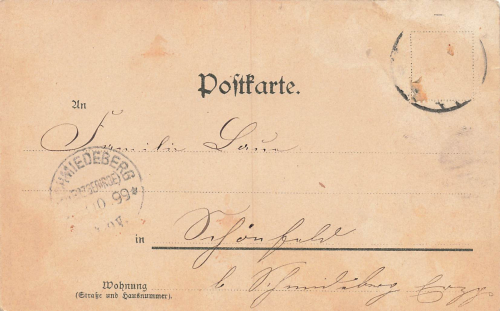 Postkarte.
An
Familie Laue
SCHMIEDEBERG
99
in Schönfeld
b. Schmiedeberg Erzg.
Wohnung
(Straße und Hausnummer).